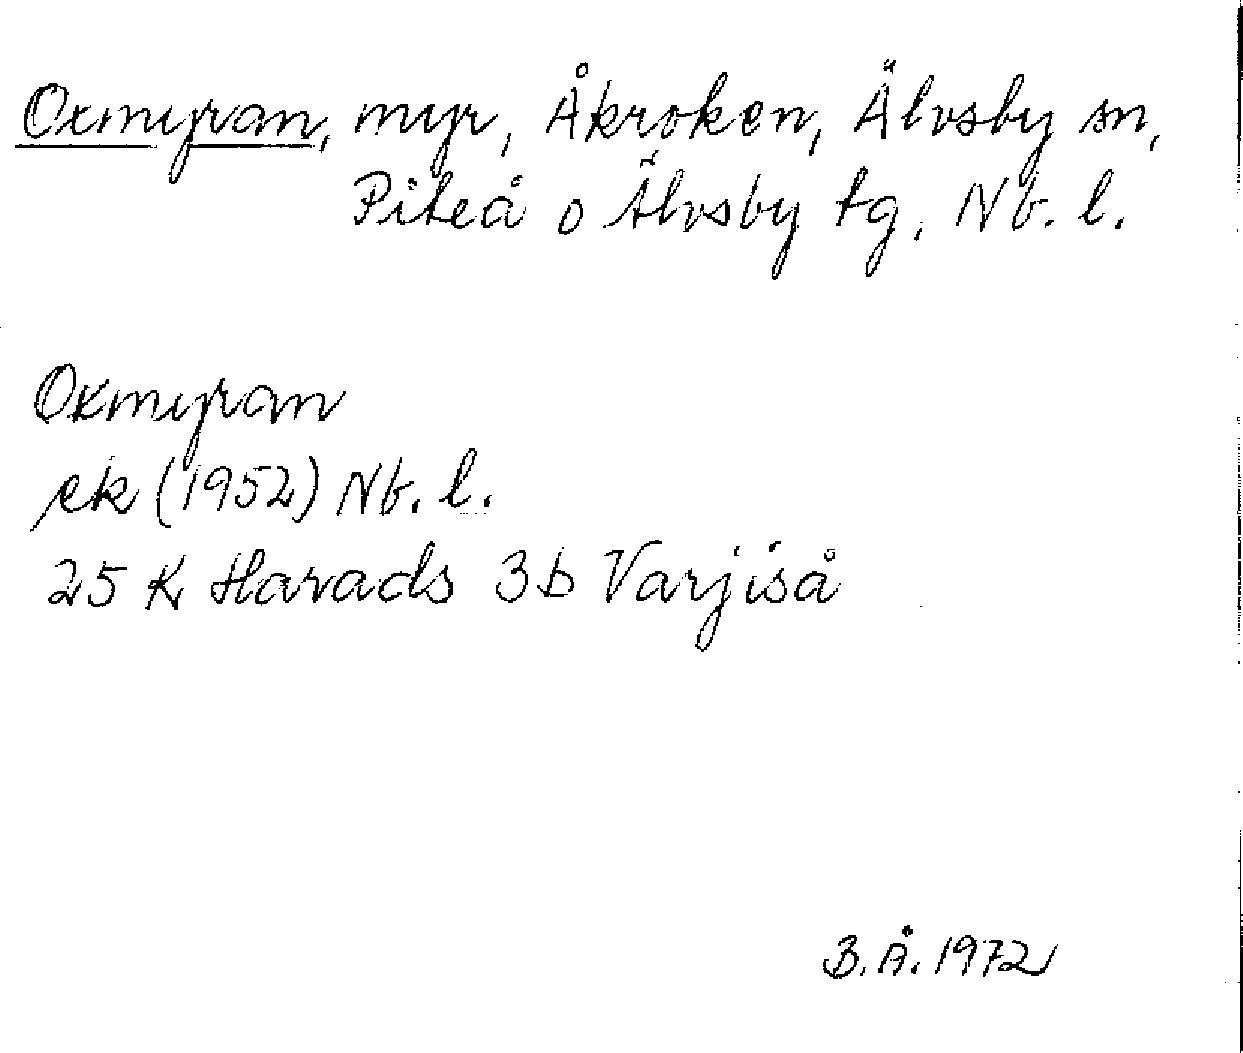 Oxmyran, myr, Åkroken, Älvsby sn,
Piteå o Älvsby tg, Nb. l.
Oxmyran
ek (1952) Nb. l.
25 K Harads 3b Varjiså
B. Å. 1972